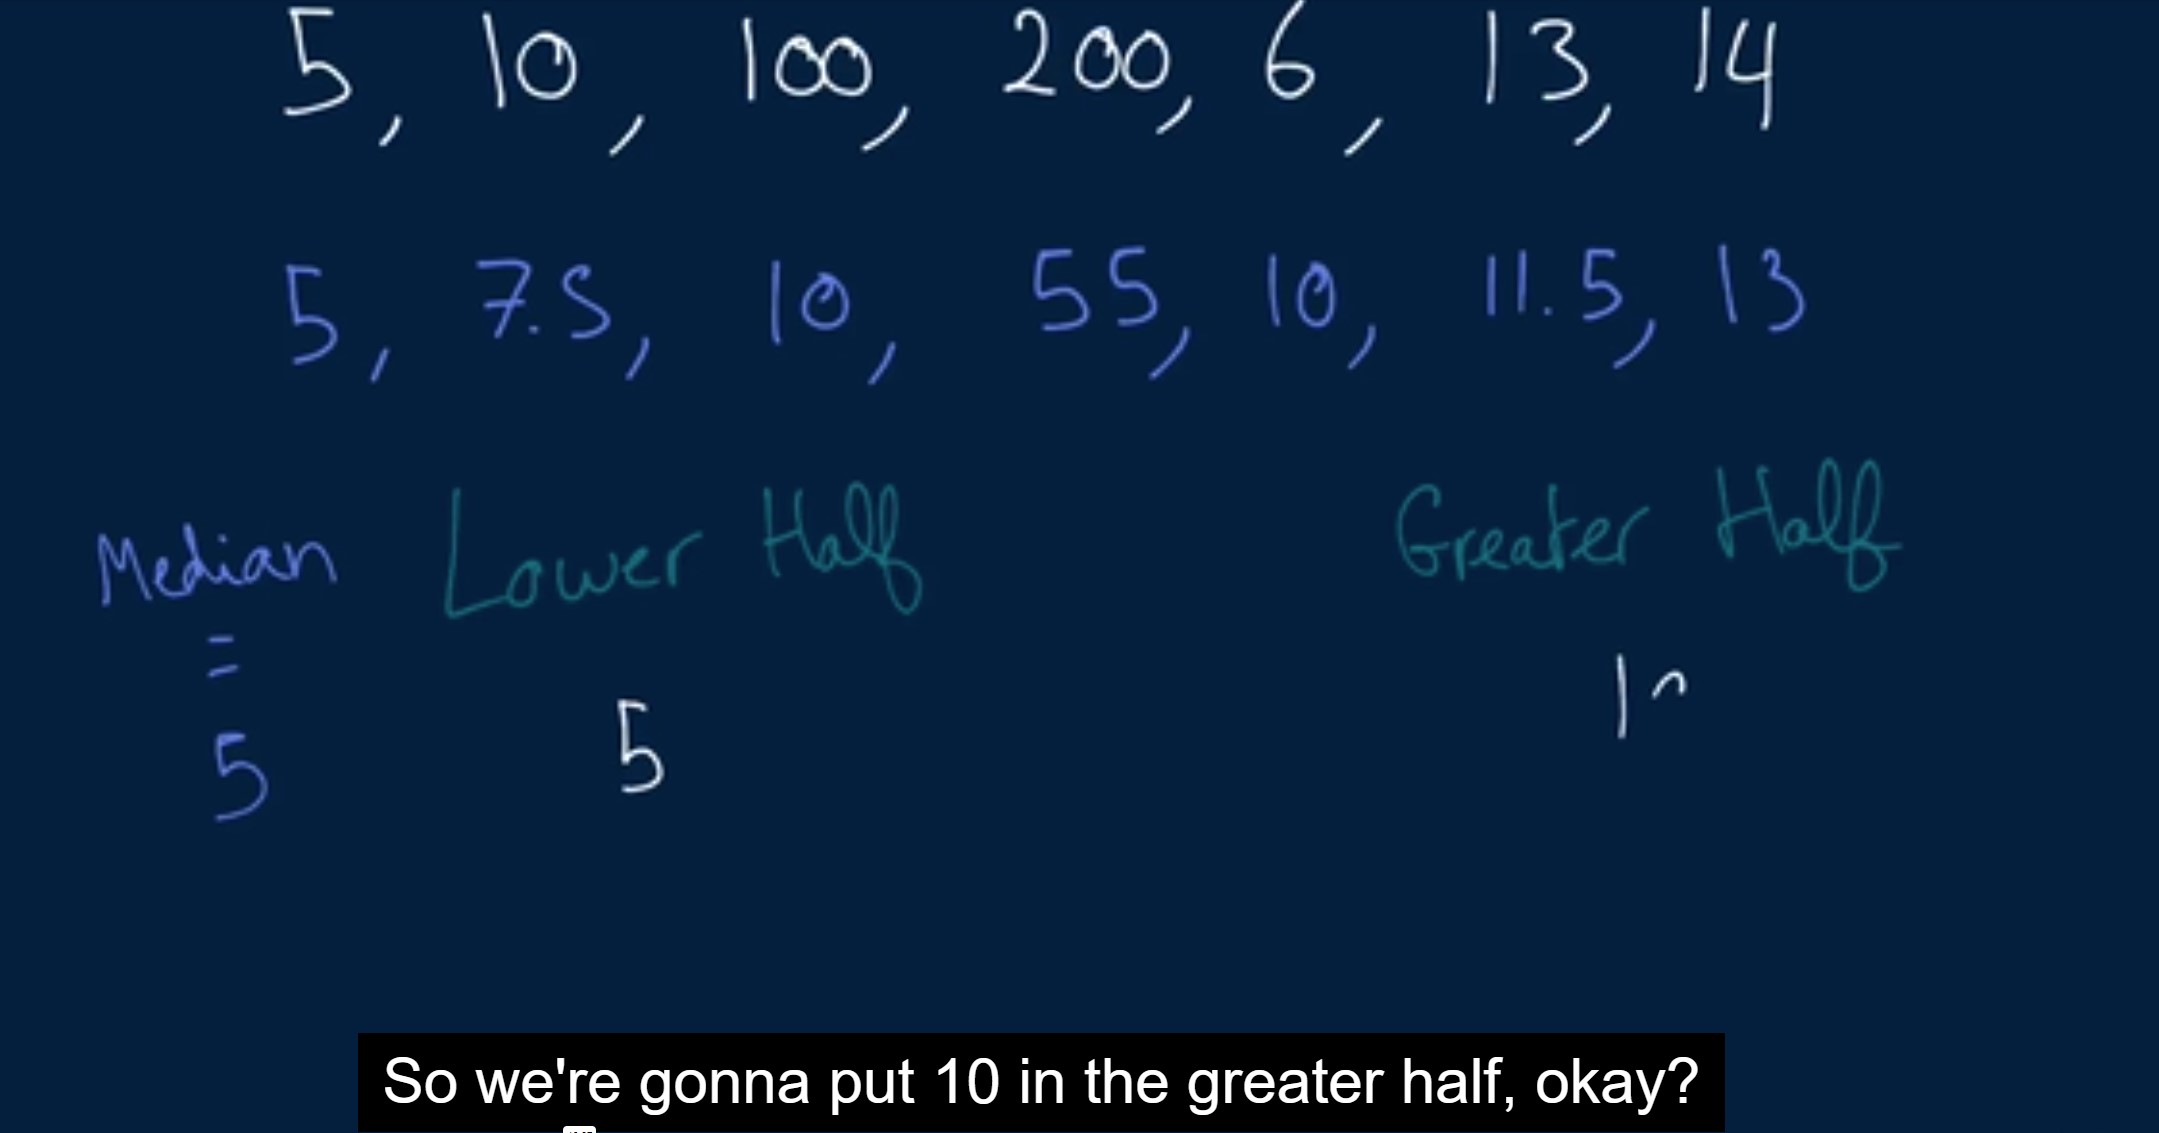 5, 10, 100, 200, 6, 13, 14
5, 7.5, 10, 55, 10, 11.5, 13
Median Lower Half Greater Half
=
5 5 1
So we're gonna put 10 in the greater half, okay?